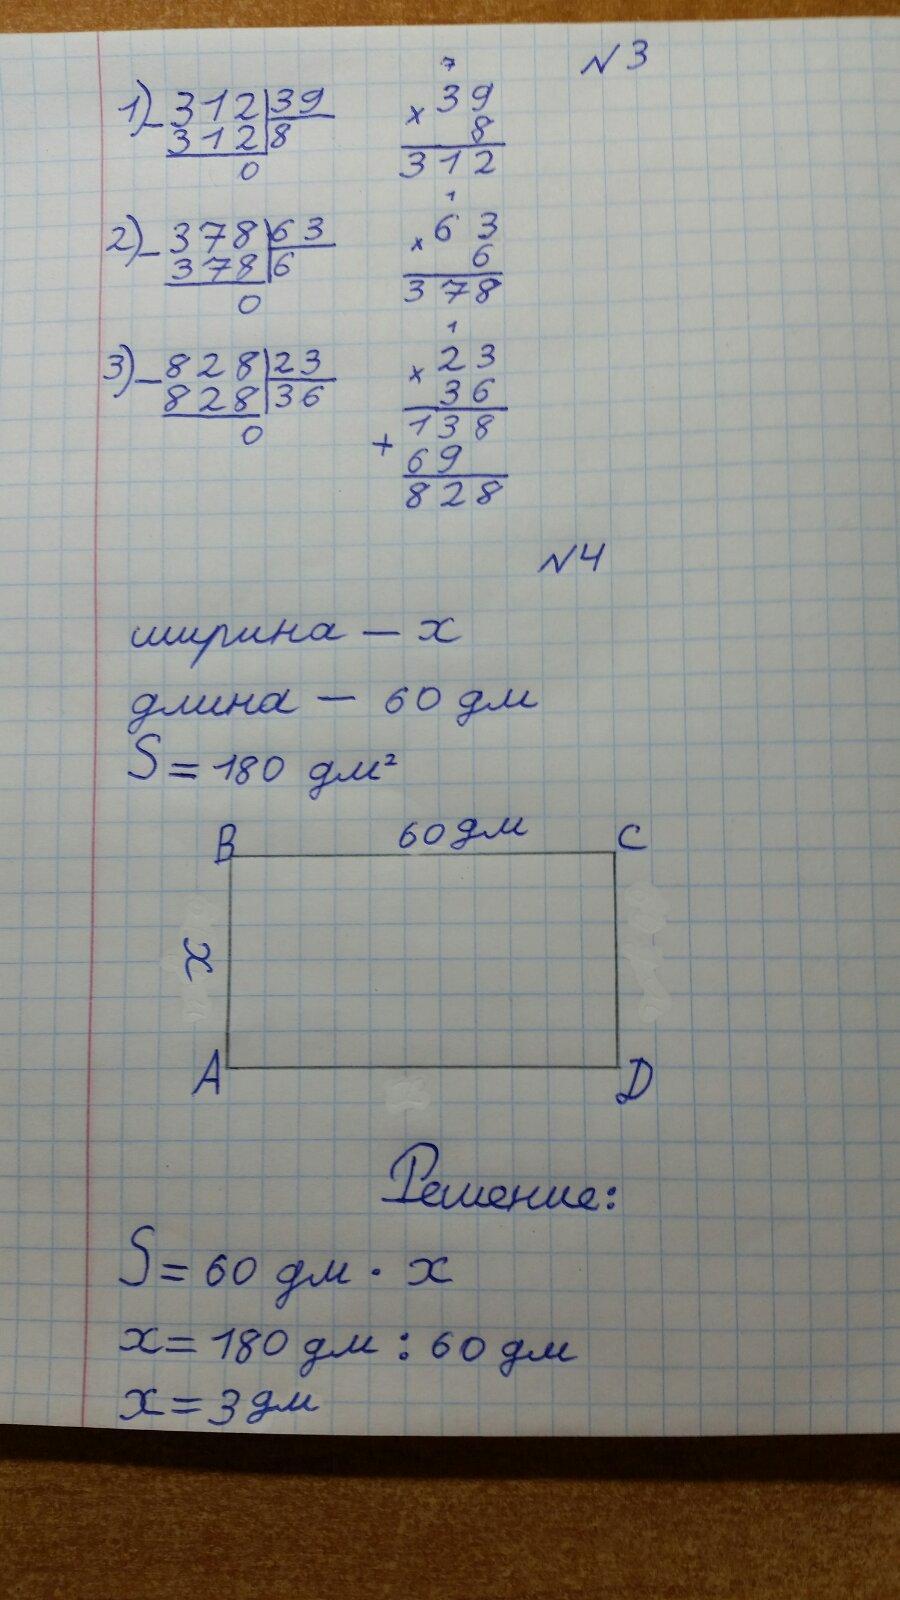 №3
7
1) 312 | 39 × 39
312 | 8 8
0 312
1
2) 378 | 63 × 63
378 | 6 6
0 378
1
3) 828 | 23 × 23
828 | 36 36
0 138
+ 69
828
№4
ширина – x
длина – 60 дм
S = 180 дм²
B 60 дм C
x
A D
Решение:
S = 60 дм · x
x = 180 дм : 60 дм
x = 3 дм